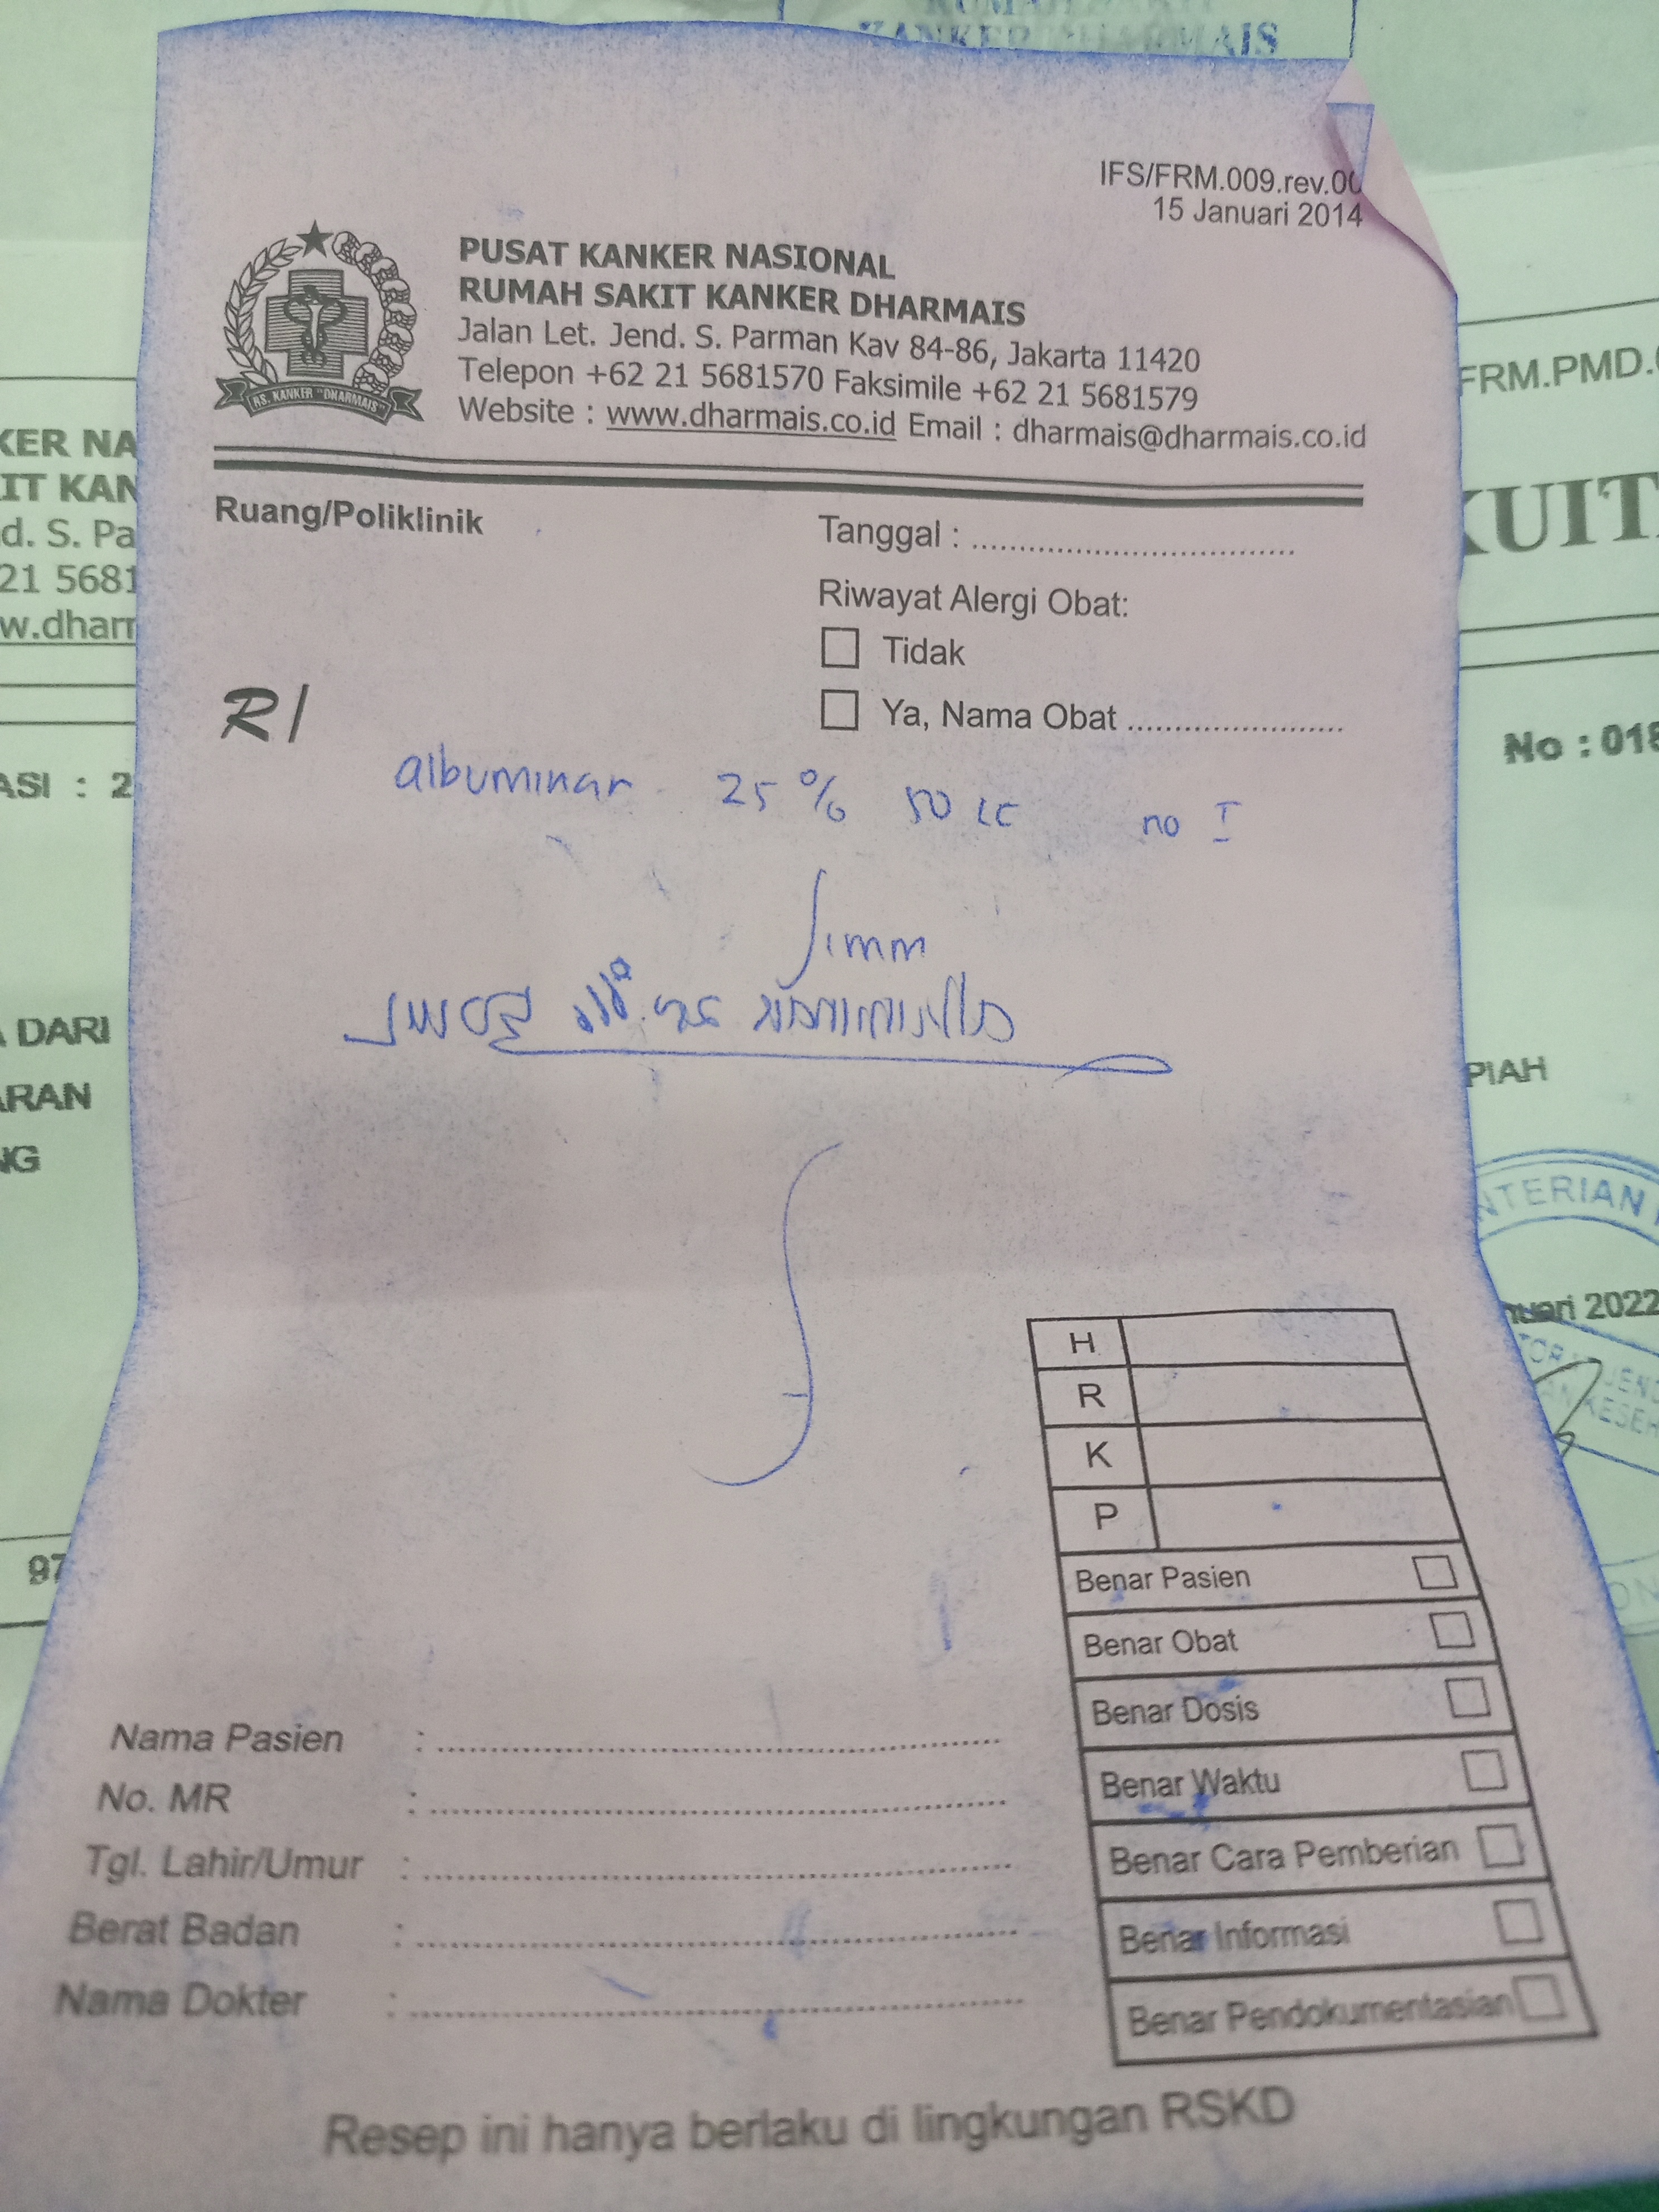 KANKER DHARMAIS
IFS/FRM.009.rev.00
15 Januari 2014
PUSAT KANKER NASIONAL
RUMAH SAKIT KANKER DHARMAIS
Jalan Let. Jend. S. Parman Kav 84-86, Jakarta 11420
Telepon +62 21 5681570 Faksimile +62 21 5681579
Website : www.dharmais.co.id Email : dharmais@dharmais.co.id
RS. KANKER "DHARMAIS"
Ruang/Poliklinik
Tanggal :
Riwayat Alergi Obat:
Tidak
Ya, Nama Obat
R/
albuminar 25 % 50 cc no I
H
R
K
P
Benar Pasien
Benar Obat
Benar Dosis
Benar Waktu
Benar Cara Pemberian
Benar Informasi
Benar Pendokumentasian
Nama Pasien :
No. MR :
Tgl. Lahir/Umur :
Berat Badan :
Nama Dokter :
Resep ini hanya berlaku di lingkungan RSKD
KER NA
IT KAN
d. S. Pa
21 5681
w.dharm
ASI : 2
DARI
ARAN
NG
97
FRM.PMD.
KUIT
No : 018
PIAH
NTERIAN
nuari 2022